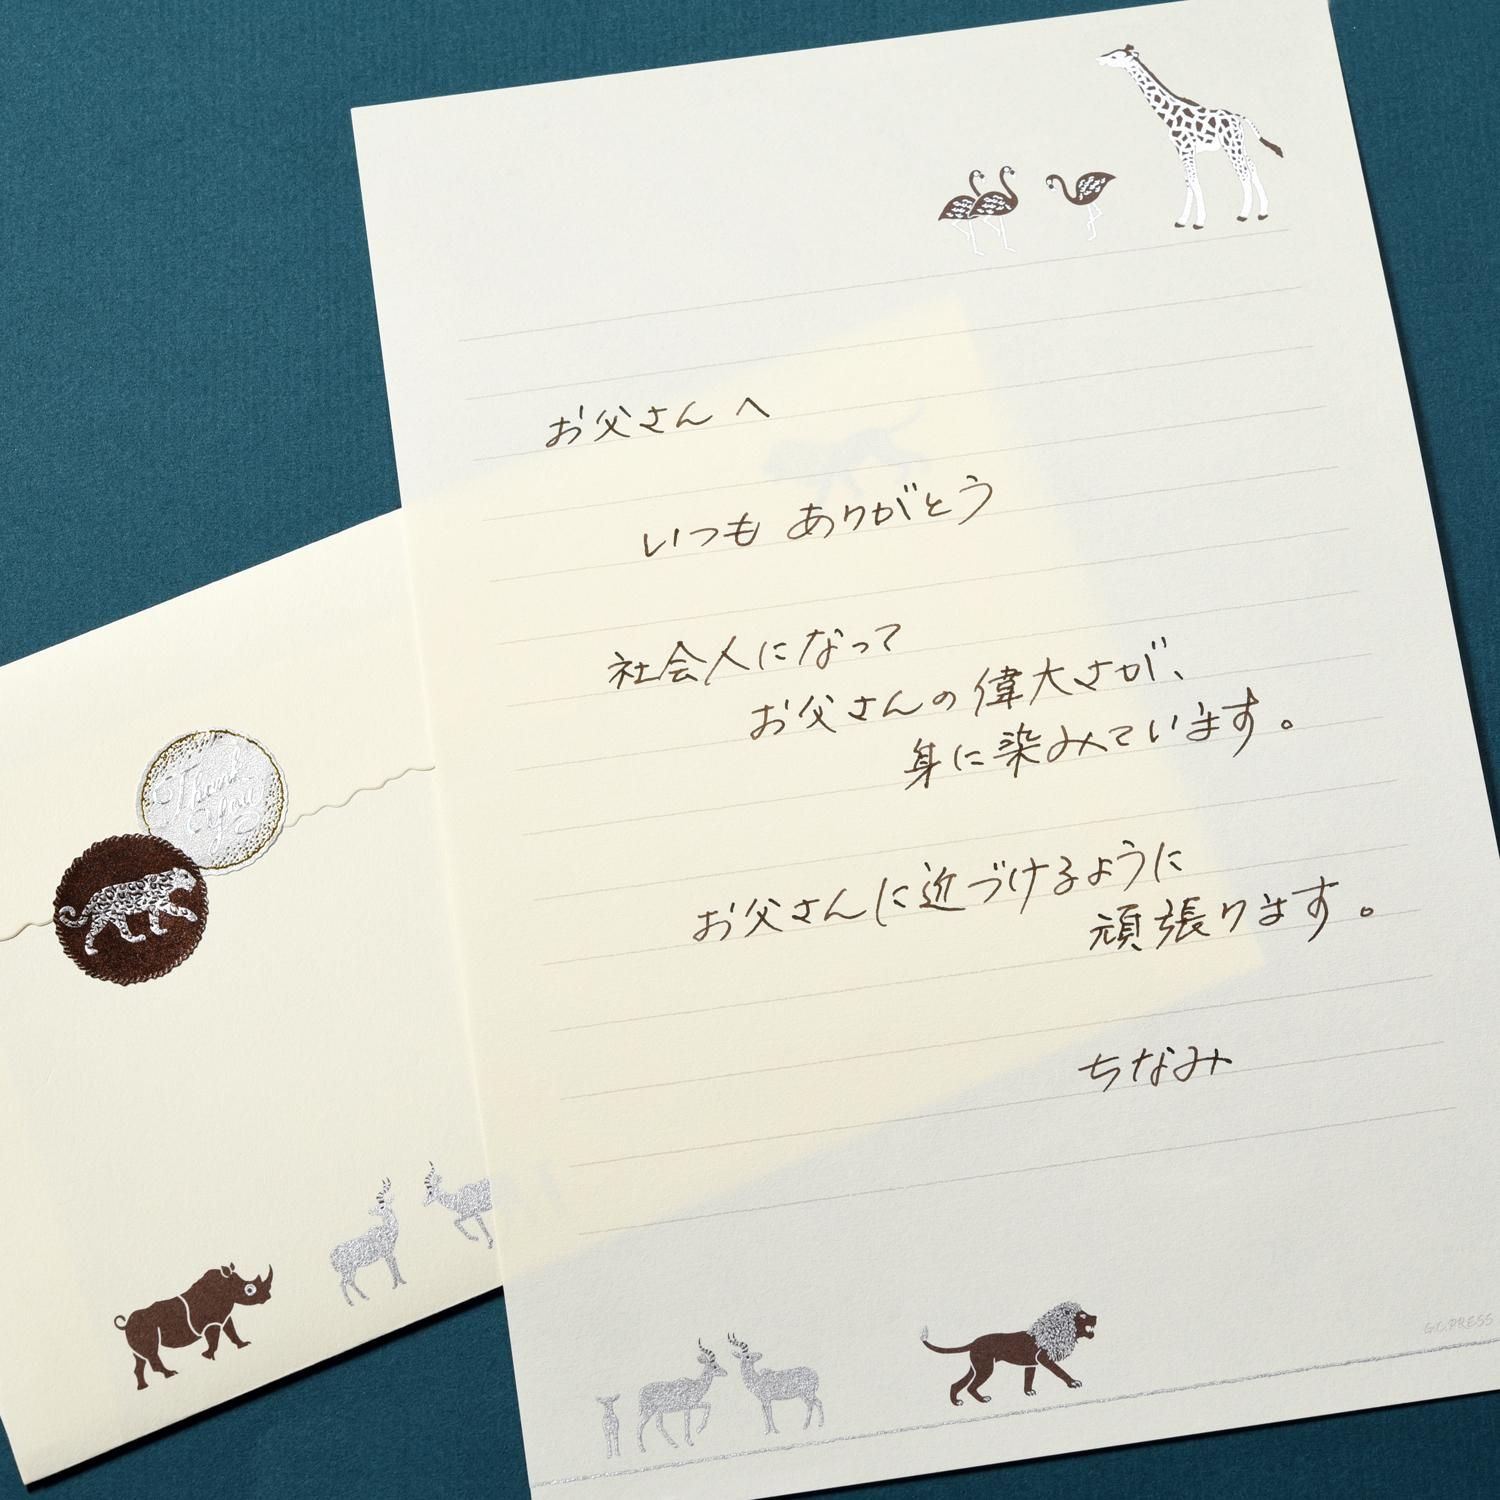 お父さんへ
いつも ありがとう
社会人になって
お父さんの偉大さが、
身に染みています。
お父さんに近づけるように
頑張ります。
ちなみ
Thank
You
G.C.PRESS